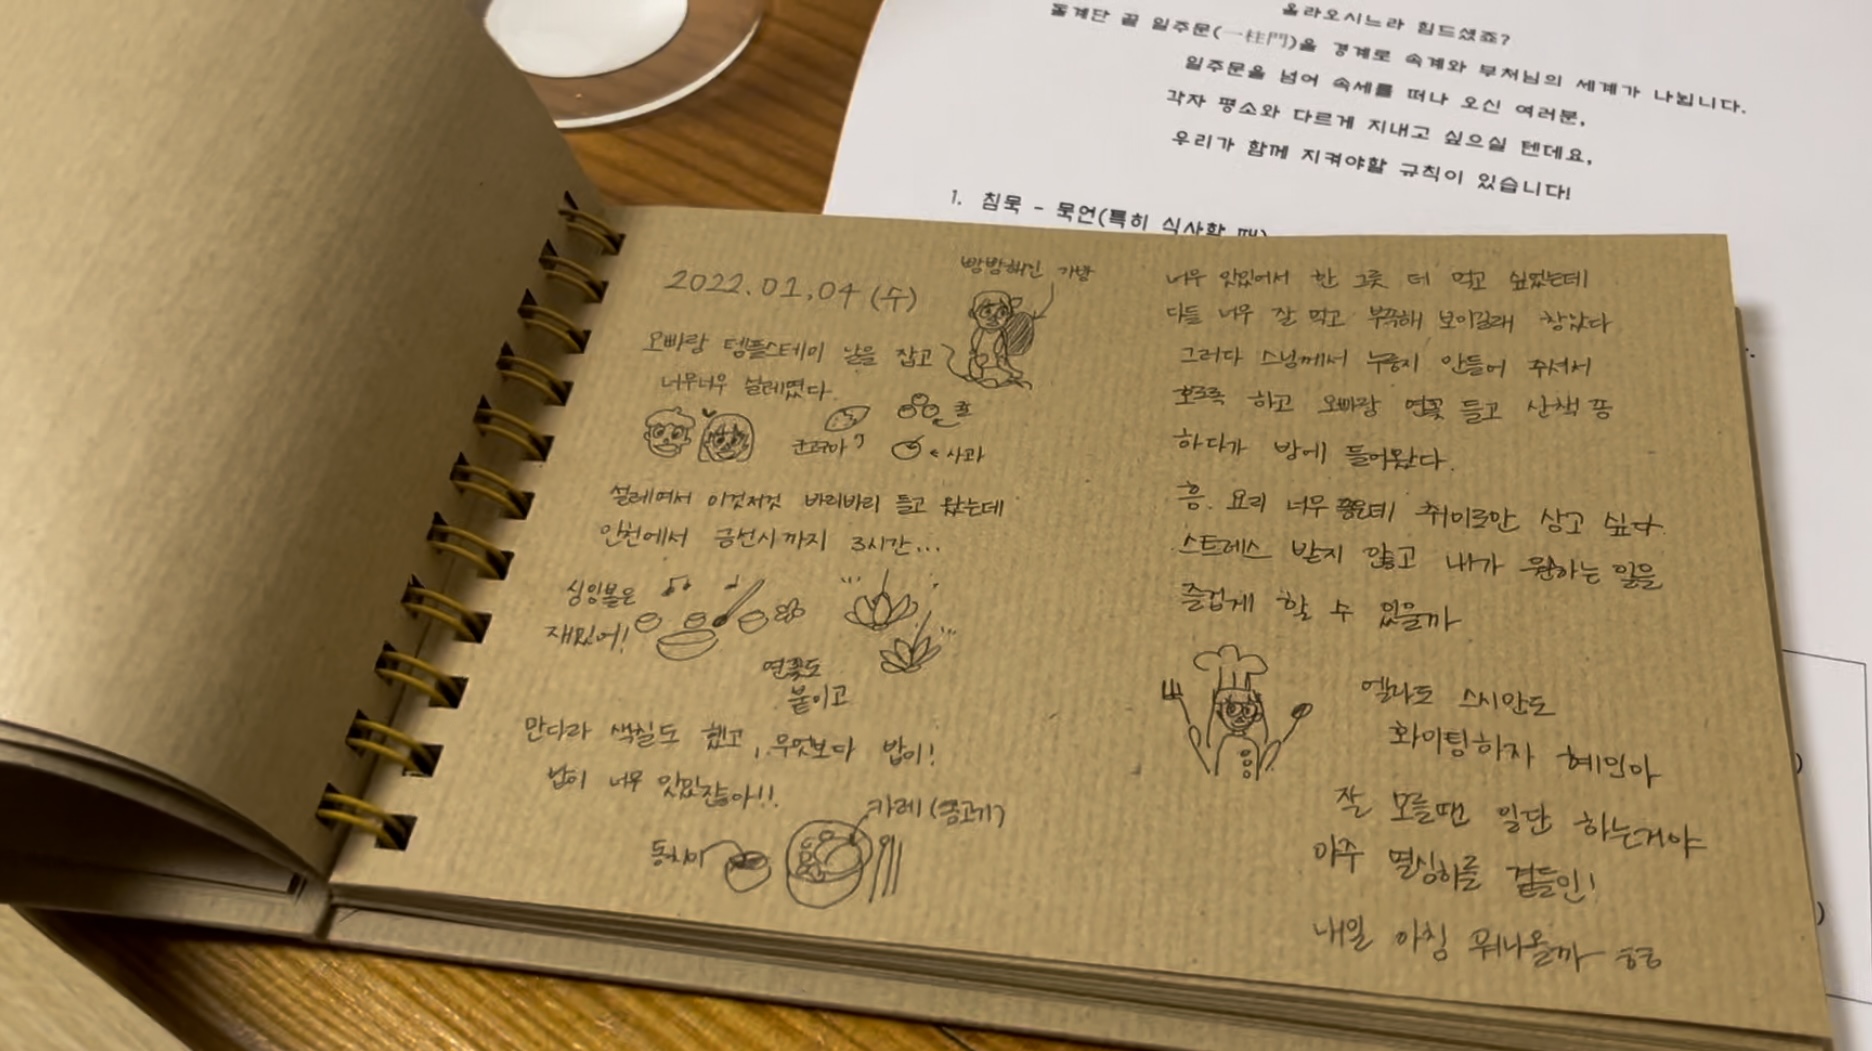 올라오시느라 힘드셨죠?
돌계단 끝 일주문(一柱門)을 경계로 속계와 부처님의 세계가 나뉩니다.
일주문을 넘어 속세를 떠나 오신 여러분,
각자 평소와 다르게 지내고 싶으실 텐데요,
우리가 함께 지켜야할 규칙이 있습니다!
1. 침묵 - 묵언(특히 식사할 때)
2022.01.04 (수)
빵빵해진 가방
오빠랑 템플스테이 날을 잡고
너무너무 설레였다.
군고구마
귤
사과
설레여서 이것저것 바리바리 들고 왔는데
인천에서 금선사까지 3시간...
싱잉볼은
재밌어!
연꽃도
붙이고
만다라 색칠도 했고, 무엇보다 밥이!
밥이 너무 맛있잖아!!
카레 (콩고기)
동치미
너무 맛있어서 한 그릇 더 먹고 싶었는데
다들 너무 잘 먹고 부족해 보이길래 참았다
그러다 스님께서 누룽지 만들어 주셔서
호로록 하고 오빠랑 연꽃 들고 산책 쫌
하다가 방에 들어왔다.
흥. 요리 너무 좋은데 취미로만 삼고 싶다
스트레스 받지 않고 내가 원하는 일을
즐겁게 할 수 있을까
엘라도 스시안도
화이팅하자 혜민아
잘 모를땐 일단 하는거야
아주 열심히를 곁들인!
내일 아침 뭐나올까 ㅎㅎ